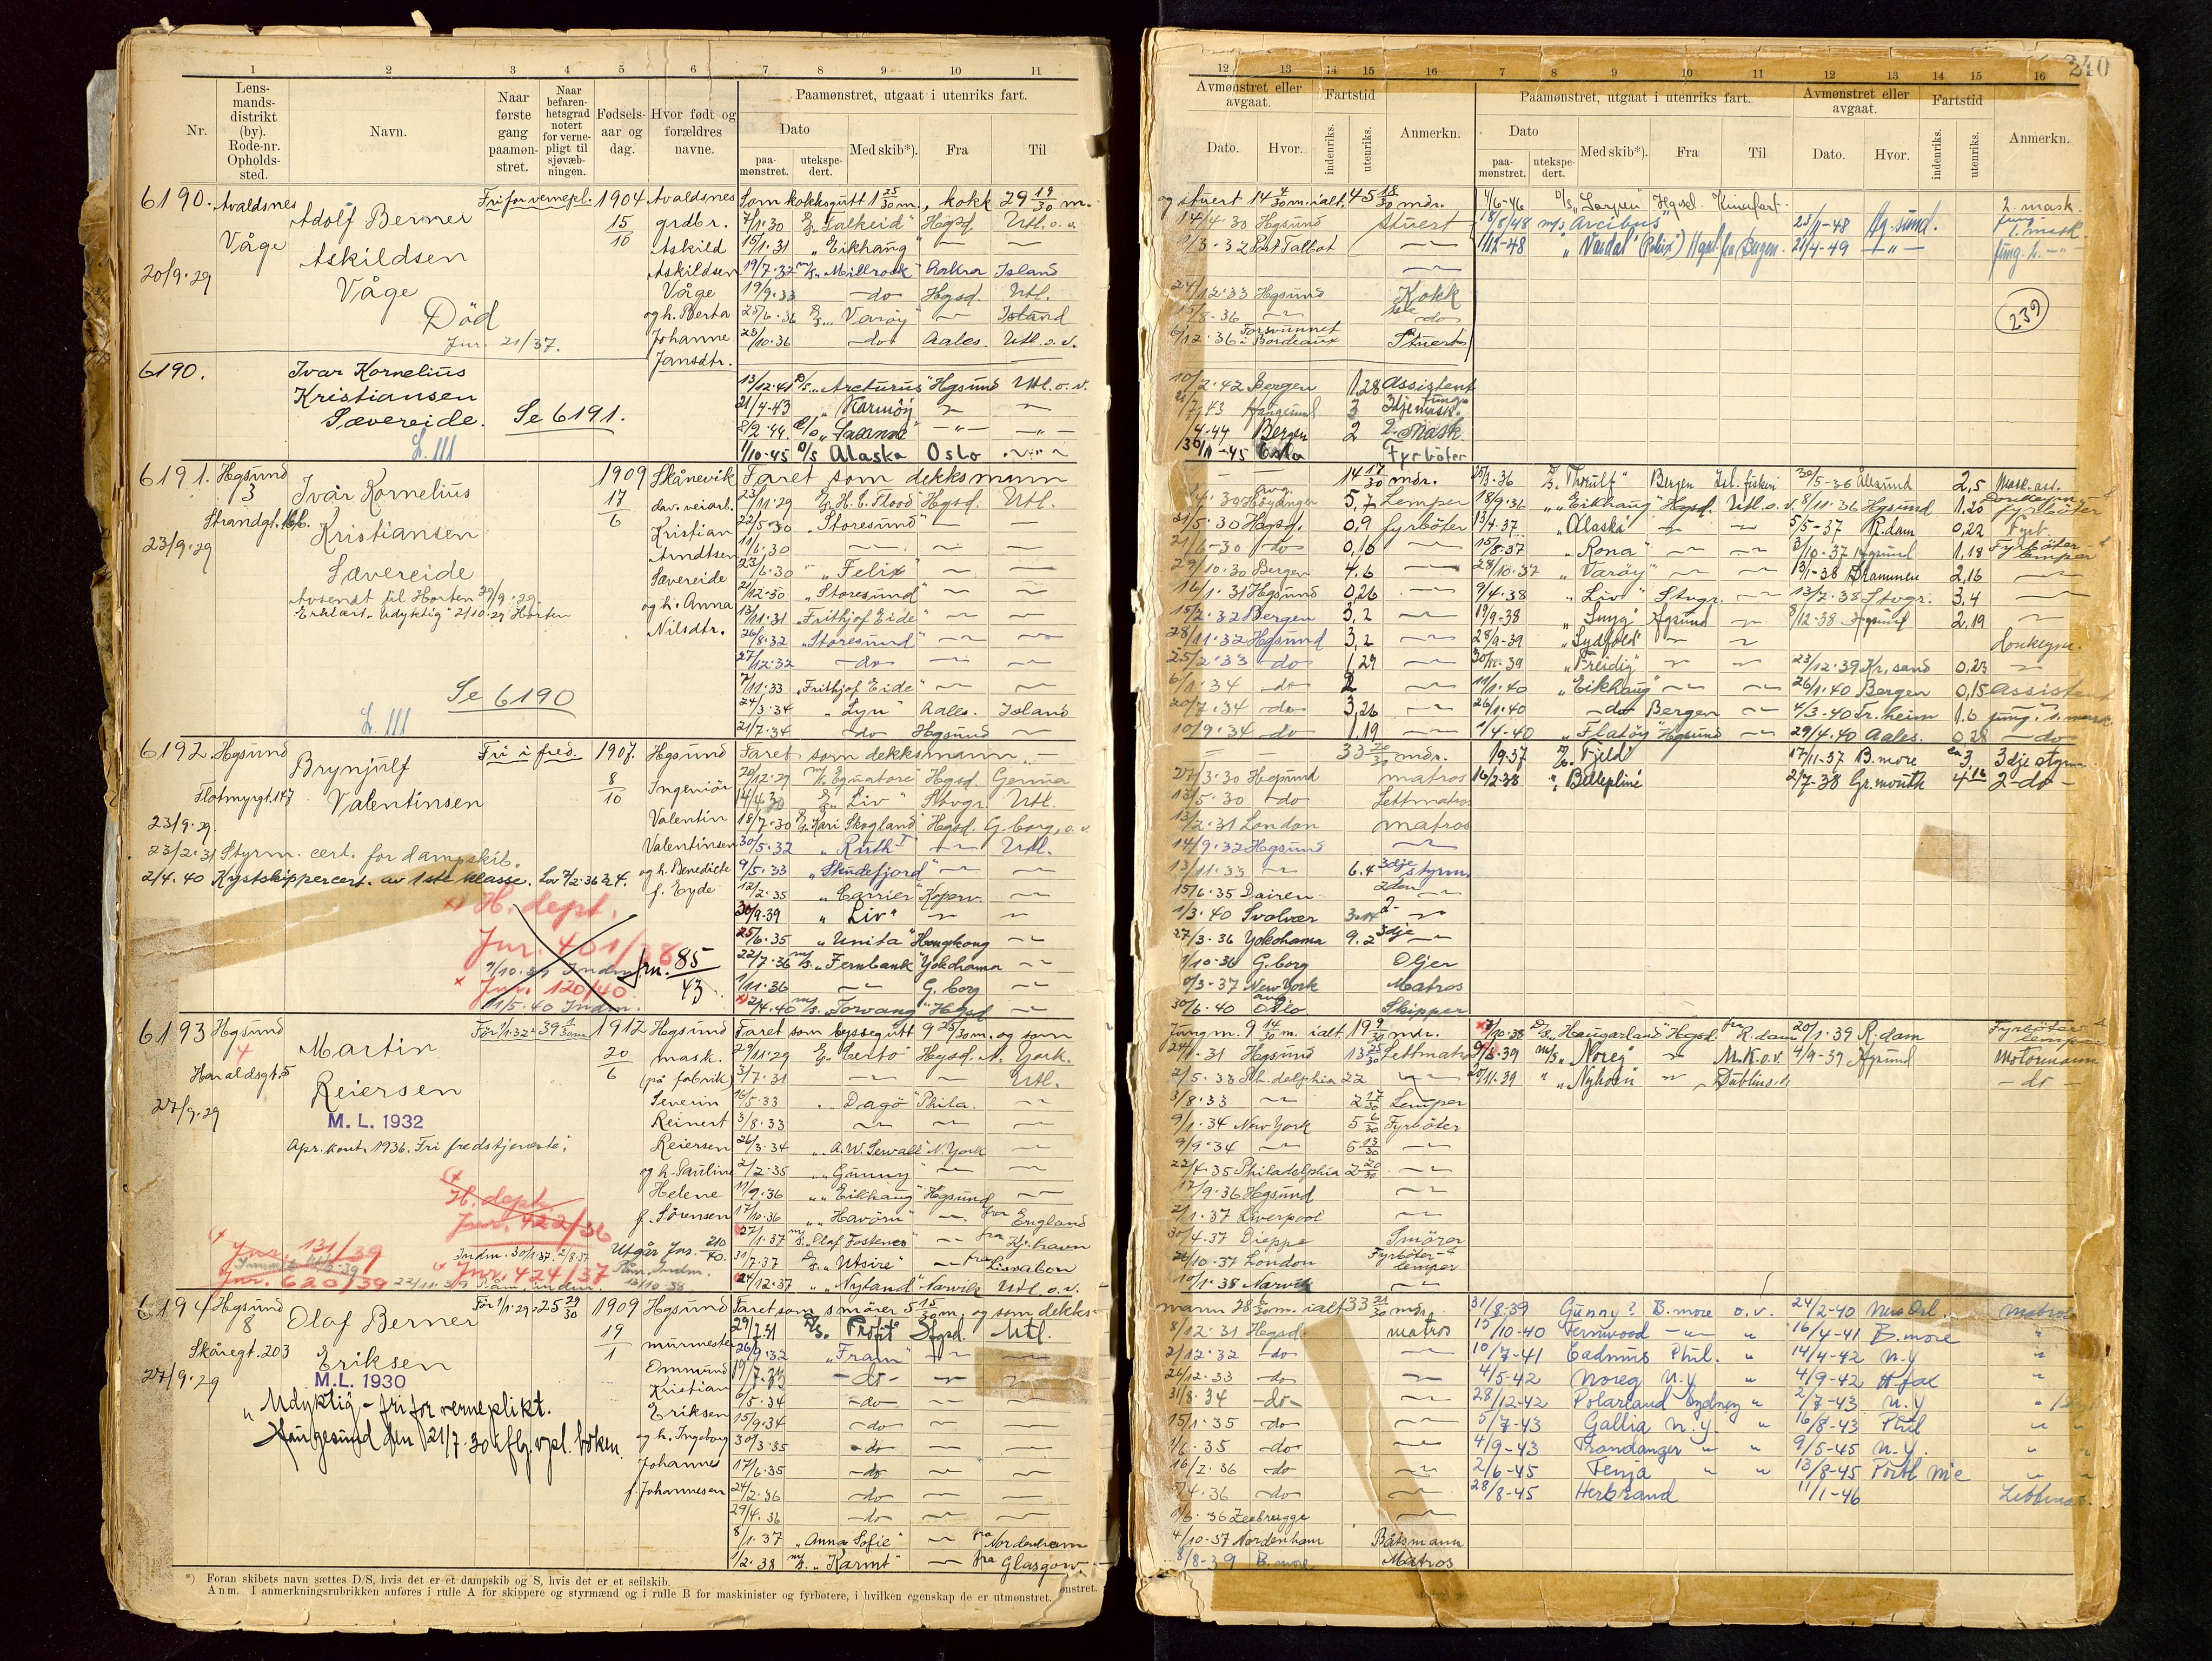 1 2 3 4 5 6 7 8 9 10 11
Nr.
Lens-
mands-
distrikt
(by).
Rode-nr.
Opholds-
sted.
Navn.
Naar
første
gang
paamøn-
stret.
Naar
befaren-
hetsgrad
notert
for verne-
pligt til
sjøvæb-
ningen.
Fødsels-
aar og
dag.
Hvor født og
forældres
navne.
Paamønstret, utgaat i utenriks fart.
Dato
paa-
mønstret.
utekspe-
dert.
Med skib*).
Fra
Til
6190. Avaldsnes
Våge
20/9·29
Adolf Berner
Askildsen
Våge
Død
Jnr. 21/37.
Fri for vernepl.
1904
15/10
Avaldsnes
grdbr.
Askild
Askildsen
Våge
og h. Berta
Johanne
Jansdtr.
Som kokksgutt 1 25/30 m., kokk 29 19/30 m.
7/1·30 "Falkeid" Hgsd. Utl. o. v.
15/1·31 "Eikhaug"
19/7·32 "Millrock" Island
19/9·33 do Hgsd. Utl.
25/6·36 "Varøy" Island
23/10·36 do Aales. Utl. o. v.
6190.
Ivar Kornelius
Kristiansen
Sævereide.
Se 6191.
L. III
13/12·41 D/S "Arcturus" Hgsund Utl. o. v.
21/4·43 "Karmøy"
8/2·44.
1/10-45 D/S Alaska Oslo
6191. Hgsund
3
Strandgt.
23/9·29
Ivar Kornelius
Kristiansen
Sævereide
Avsendt til Horten 29/9·29.
Erklært udyktig 2/10·29 Horten
Se 6190
L. III
1909
17/6
Skånevik
dav. veiarb.
Kristian
Arndtsen
Sævereide
og h. Anna
Nilsdtr.
Faret som dekksmann
23/11·29 "H. C. Flood" Hgsd. Utl.
22/5·30 "Storesund"
11/6·30
23/6·30 "Felix"
21/12·30 "Storesund"
13/11·31 "Frithjof Eide"
26/8·32 "Storesund"
27/12·32 do
7/11·33 "Frithjof Eide"
24/3·34 "Lyn" Aales. Island
21/7·34 do Hgsund
6192. Hgsund
Flotmyrgt. 147
23/9·29.
Brynjulf
Valentinsen
Fri i fred.
1907.
8/10
Hgsund
Ingeniør
Valentin
Valentinsen
og h. Benedicte
f. Eyde
23/2·31 Styrm. cert. for dampskib.
2/4·40 Kystskippercert. av 1ste klasse.
H. dept.
Jnr. 401/38
Jnr. 120/40
11/5·40 Indm.
Jrn. 85/43
Faret som dekksmann
20/12·29 "Equatore" Hgsd. Genua
14/4·30 "Liv" Stvgr. Utl.
18/7·30 "Kari Skogland" Hgsd. G.borg, o. v.
30/5·32 "Ruth I" Utl.
9/5·33 "Skudefjord"
12/2·35 "Carrier" Koperv.
30/9·39 "Liv"
25/6·35 "Unita" Hongkong
22/7·36 M/S "Fernbank" Yokohama
1/11·36 G. borg
2/4·40 M/S "Torvang" Hgsd
6193 Hgsund
4
Haraldsgt. 5
27/9·29
Martin
Reiersen
M. L. 1932
Apr. kont. 1936. Fri fredstjeneste.
H. dept.
Jnr. 422/36
Jnr. 131/39
Jnr. 620/39
Jnr. 424/37
1912
20/6
Hgsund
mask.
(på fabrik)
Severin
Reinert
Reiersen
og h. Pauline
Helene
f. Sørensen
Faret som byssegutt 9 25/30 m. og som
29/11·29 "Certo" Hgsd. N. York.
3/7·31 Utl.
16/5·33 "Dagø" Phila.
3/8·33
26/3·34 "A. W. Sewall" N. York
2/2·35 "Gunny"
11/9·36 "Eikhaug" Hgsund
17/10·36 "Havørn" fra England
27/1·37 "Olaf Fostenes" fra Kj. havn
31/7·37 "Utsire" fra Lissabon
24/12·37 "Nyland" Narvik Utl. o. v.
6194 Hgsund
8
Skåregt. 203
27/9·29
Olaf Berner
Eriksen
M. L. 1930
"Udyktig - fri for verneplikt.
Haugesund den 21/7·30 iflg. vpl. boken.
Før 1/1·29 = 25 29/30
1909
19/1
Hgsund
murmester
Ommund
Kristian
Eriksen
og h. Ingeborg
Johannes
f. Johannesen
Faret som smører 5 15/30 m. og som dekks-
29/7·31 D/S. "Profit" Hgsd. Utl.
26/9·32 "Fram"
19/7·33 do
6/5·34 do
15/9·34 do
30/3·35 do
17/6·35 do
24/2·36 do
29/4·36 do
8/1·37 "Anna Sofie" fra Nordenham
1/2·38 M/S. "Karmt" fra Glasgow
*) Foran skibets navn sættes D/S, hvis det er et dampskib og S, hvis det er et seilskib.
Anm. I anmerkningsrubrikken anføres i rulle A for skippere og styrmænd og i rulle B for maskinister og fyrbøtere, i hvilken egenskap de er utmønstret.
ønstret.
240
12 13 14 15 16 7 8 9 10 11 12 13 14 15 16
Avmønstret eller
avgaat.
Dato.
Hvor.
Fartstid
indenriks.
utenriks.
Anmerkn.
Paamønstret, utgaat i utenriks fart.
Dato
paa-
mønstret.
utekspe-
dert.
Med skib*).
Fra
Til
Avmønstret eller
avgaat.
Dato.
Hvor.
Fartstid
indenriks.
utenriks.
Anmerkn.
og stuert 14 4/30 m. ialt 45 18/30 mdr.
14/4·30 Hgsund Stuert
Port Talbot
24/12·33 Hgsund Kokk
15/8·36 do
6/12·36 Forsvunnet i Bordeaux Stuert
4/6-46 Hgsd. Kinafart 2. mask.
18/8/48 M/S "Arcibus" 23/11-48 Hg.sund.
1/12-48 21/4-49
239
10/2·42 Bergen 1,28 Assistent
Haugesund 3 3dje mask.
Bergen 2 2. Mask
Oslo Fyrbøter
14 17/30 mdr.
Høyanger 5,7 Lemper
31/5·30 Hgsd. 0,9 fyrbøter
21/6-30 do 0,10
29/10·30 Bergen 4.6
16/1·31 Hgsund 0,26
15/2·32 Bergen 3,2
28/11·32 Hgsund 3,2
25/2·33 do 1,29
6/1·34 do 2
20/7·34 do 3,26
10/9·34 do 1,19
15/3·36 Bergen Isl. fiskeri 30/5-36 Ålesund 2,5 Mask. ass.
18/9·36 "Eikhaug" Hgsd. Utl. o. v. 8/11·36 Hgsund 1,20 fyrbøter
13/4·37 "Alaska" 5/5-37 R.dam 0,22 Fyrb.
15/8·37 "Rona" 3/10·37 Hgsund 1,18 Fyrbøter lemper
28/10·37 "Varøy" 13/1-38 Drammen 2,16
9/4·38 "Liv" Stvgr. 13/7·38 Stvgr. 3,4
19/9-38 "Snyg" Hgsund 8/12·38 Hgsund 2,19
28/9-39 "Sydfold" Donkeym.
"Freidig" 23/12·39 Kr.sand 0,23
11/1·40 "Eikhaug" 26/1·40 Bergen 0,15 Assistent
26/1·40 do Bergen 4/3·40 Tr.heim 1.6
1/4-40 "Flatøy" Hgsund 29/4·40 Aales. 0,28 do
33 20/30 mdr.
27/3·30 Hgsund matros
13/5·30 do Lettmatros
13/2·31 London matros
14/9·32 Hgsund
13/11·33 6.4 3dje styrm.
15/6·35 Dairen 2den
1/3·40 Svolvær 2-
27/3·36 Yokohama 9.2 3dje
1/10·36 G.borg Oljer
New York Matros
30/6·40 Oslo Skipper
19·37 "Fjeld" 17/11·37 B.more 3. 3dje styrm
16/2·38 "Bellepline" 2/7-38 Gr.mouth 4 16 2-do-
Jungm. 9 14/30 m. ialt 19 9/30 mdr.
24/1·31 Hgsund 13 25/30 Lettmatros
2/5·33 Ph.delphia 22
3/8·33 2 17/30 Lemper
9/1·34 New York 5 6/30 Fyrbøter
9/9·34 5 13/30
22/4·35 Philadelphia 2 20/30
17/9·36 Hgsund
2/1·37 Liverpool
30/4·37 Dieppe Smører
London Fyrbøter-lemper
10/1·38 Narvik
"Haugarland" Hgsd fra R.dam 20/1·39 R.dam Fyrbøter lemper
M/S "Noreg" 4/9-39 Hgsund Motormann
20/11·39 "Nyhorn" do
mann 28 6/30 m. ialt 33 21/30 mdr.
8/12·31 Hgsd. matros
2/12·32 do
26/12·33 do
31/8·34 do
15/1·35 do
1/6·35 do
16/2·36 do
5/4·36 do
Zeebrugge
4/10·37 Nordenham Båtsmann
8/8-39 B.more Matros
31/8-39 Gunny? B.more o. v. 24/2-40 New Orl. Matros
15/10-40 Fernwood 16/4-41 B.more
10/7-41 Cadmus Phil. 14/4-42 N.Y
4/5-42 Noreg N.Y 4/9-42 H.fax
28/12-42 Polarland Sydney 2/7-43 N.Y
5/7-43 Gallia N.Y. 16/8-43 Phil
4/9-43 Trondanger 9/5-45 N.Y.
2/6-45 Fenja 13/8-45 Portl Me
28/8-45 Herbrand 11/1-46